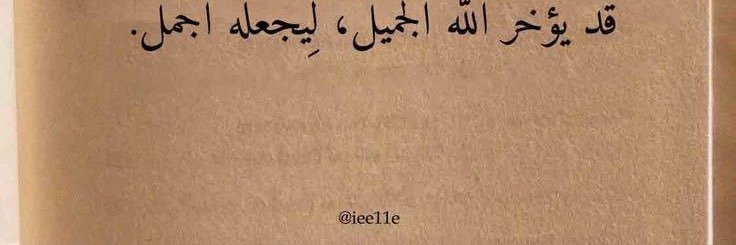 قد يؤخر الله الجميل، لِيجعله اجمل.
@iee11e